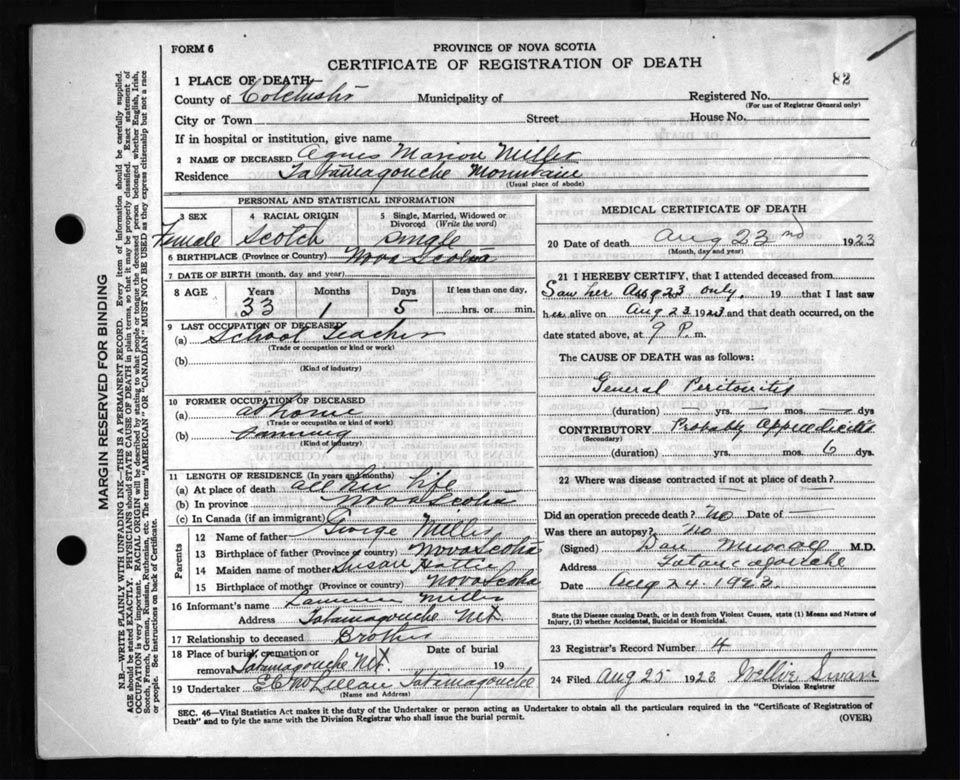 FORM 6
PROVINCE OF NOVA SCOTIA
CERTIFICATE OF REGISTRATION OF DEATH
82
1 PLACE OF DEATH
County of Colchester Municipality of Registered No.
(For use of Registrar General only)
City or Town Street House No.
If in hospital or institution, give name
2 NAME OF DECEASED Agnes Marion Miller
Residence Tatamagouche Mountain
(Usual place of abode)
PERSONAL AND STATISTICAL INFORMATION
3 SEX 4 RACIAL ORIGIN 5 Single, Married, Widowed or Divorced (Write the word)
Female Scotch Single
6 BIRTHPLACE (Province or Country) Nova Scotia
7 DATE OF BIRTH (month, day and year)
8 AGE Years Months Days If less than one day,
33 1 5 hrs. or min.
9 LAST OCCUPATION OF DECEASED
(a) School Teacher
(Trade or occupation or kind or work)
(b)
(Kind of industry)
10 FORMER OCCUPATION OF DECEASED
(a) at home
(Trade or occupation or kind of work)
(b) Farming
(Kind of industry)
11 LENGTH OF RESIDENCE (In years and months)
(a) At place of death all her life
(b) In province Nova Scotia
(c) In Canada (if an immigrant)
Parents
12 Name of father George Miller
13 Birthplace of father (Province or country) Nova Scotia
14 Maiden name of mother Susan
15 Birthplace of mother (Province or country) Nova Scotia
16 Informant's name Miller
Address Tatamagouche Mt.
17 Relationship to deceased Brother
18 Place of burial, cremation or removal Tatamagouche Mt. Date of burial 19
19 Undertaker E C McLellan Tatamagouche
(Name and Address)
MEDICAL CERTIFICATE OF DEATH
20 Date of death Aug 23nd 1923
(Month, day and year)
21 I HEREBY CERTIFY, that I attended deceased from
Saw her Aug 23 only, 19 that I last saw
her alive on Aug 23 1923 and that death occurred, on
date stated above, at 9 P. m.
The CAUSE OF DEATH was as follows:
General Peritonitis
(duration) — yrs. — mos. — dys
CONTRIBUTORY Probably Appendicitis
(Secondary)
(duration) yrs. mos. 6 dys.
22 Where was disease contracted if not at place of death?
Did an operation precede death? No Date of —
Was there an autopsy? No
(Signed) Dan Murray M.D.
Address Tatamagouche
Date Aug 24. 1923
State the Disease causing Death, or in death from Violent Causes, state (1) Means and Nature of
Injury, (2) whether Accidental, Suicidal or Homicidal.
23 Registrar's Record Number 4
24 Filed Aug 25 1923 Nellie Swan
Division Registrar
SEC. 46—Vital Statistics Act makes it the duty of the Undertaker or person acting as Undertaker to obtain all the particulars required in the "Certificate of Registration of
Death" and to fyle the same with the Division Registrar who shall issue the burial permit.
(OVER)
MARGIN RESERVED FOR BINDING
N.B.—WRITE PLAINLY WITH UNFADING INK—THIS IS A PERMANENT RECORD. Every item of information should be carefully supplied.
AGE should be stated EXACTLY. PHYSICIANS should STATE CAUSE OF DEATH in plain terms, so that it may be properly classified. Exact statement of
OCCUPATION is very important. RACIAL ORIGIN will be described by stating to what people or tongue the deceased person belonged, whether English, Irish,
Scotch, French, German, Russian, Ruthenian, etc. The terms "AMERICAN" OR "CANADIAN" MUST NOT BE USED as they express citizenship but not a race
or people. See instructions on back of Certificate.